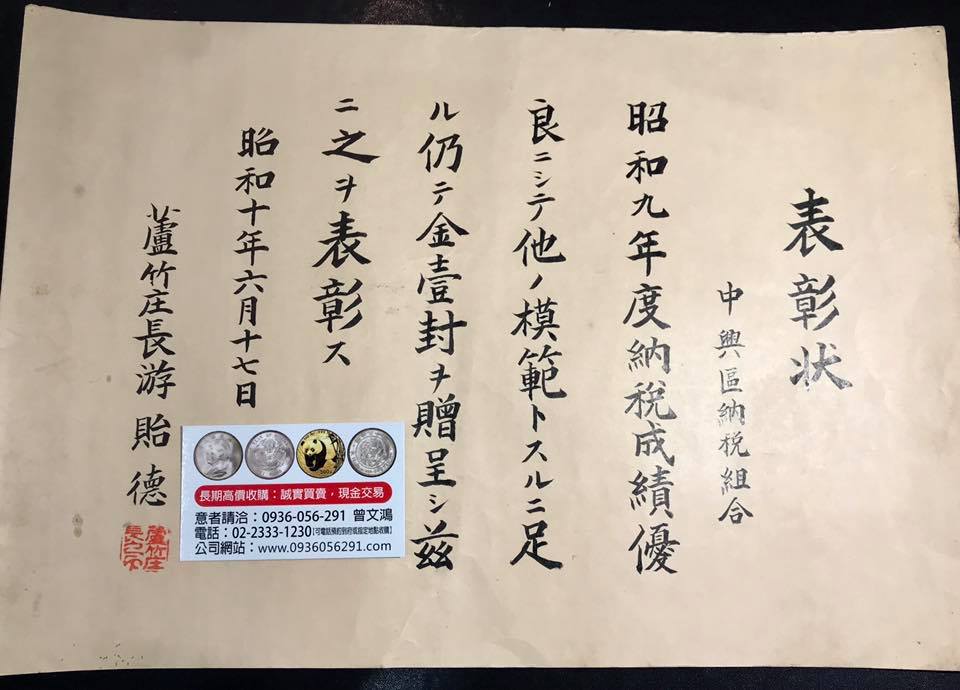 表彰状
中興區納税組合
昭和九年度納税成績優
良ニシテ他ノ模範トスルニ足
ル仍テ金壹封ヲ贈呈シ茲
ニ之ヲ表彰ス
昭和十年六月十七日
蘆竹庄長游貽德
蘆竹庄
長之印
長期高價收購：誠實買賣，現金交易
意者請洽：0936-056-291 曾文鴻
電話：02-2333-1230(可電話預約到府或指定地點收購)
公司網站：www.0936056291.com